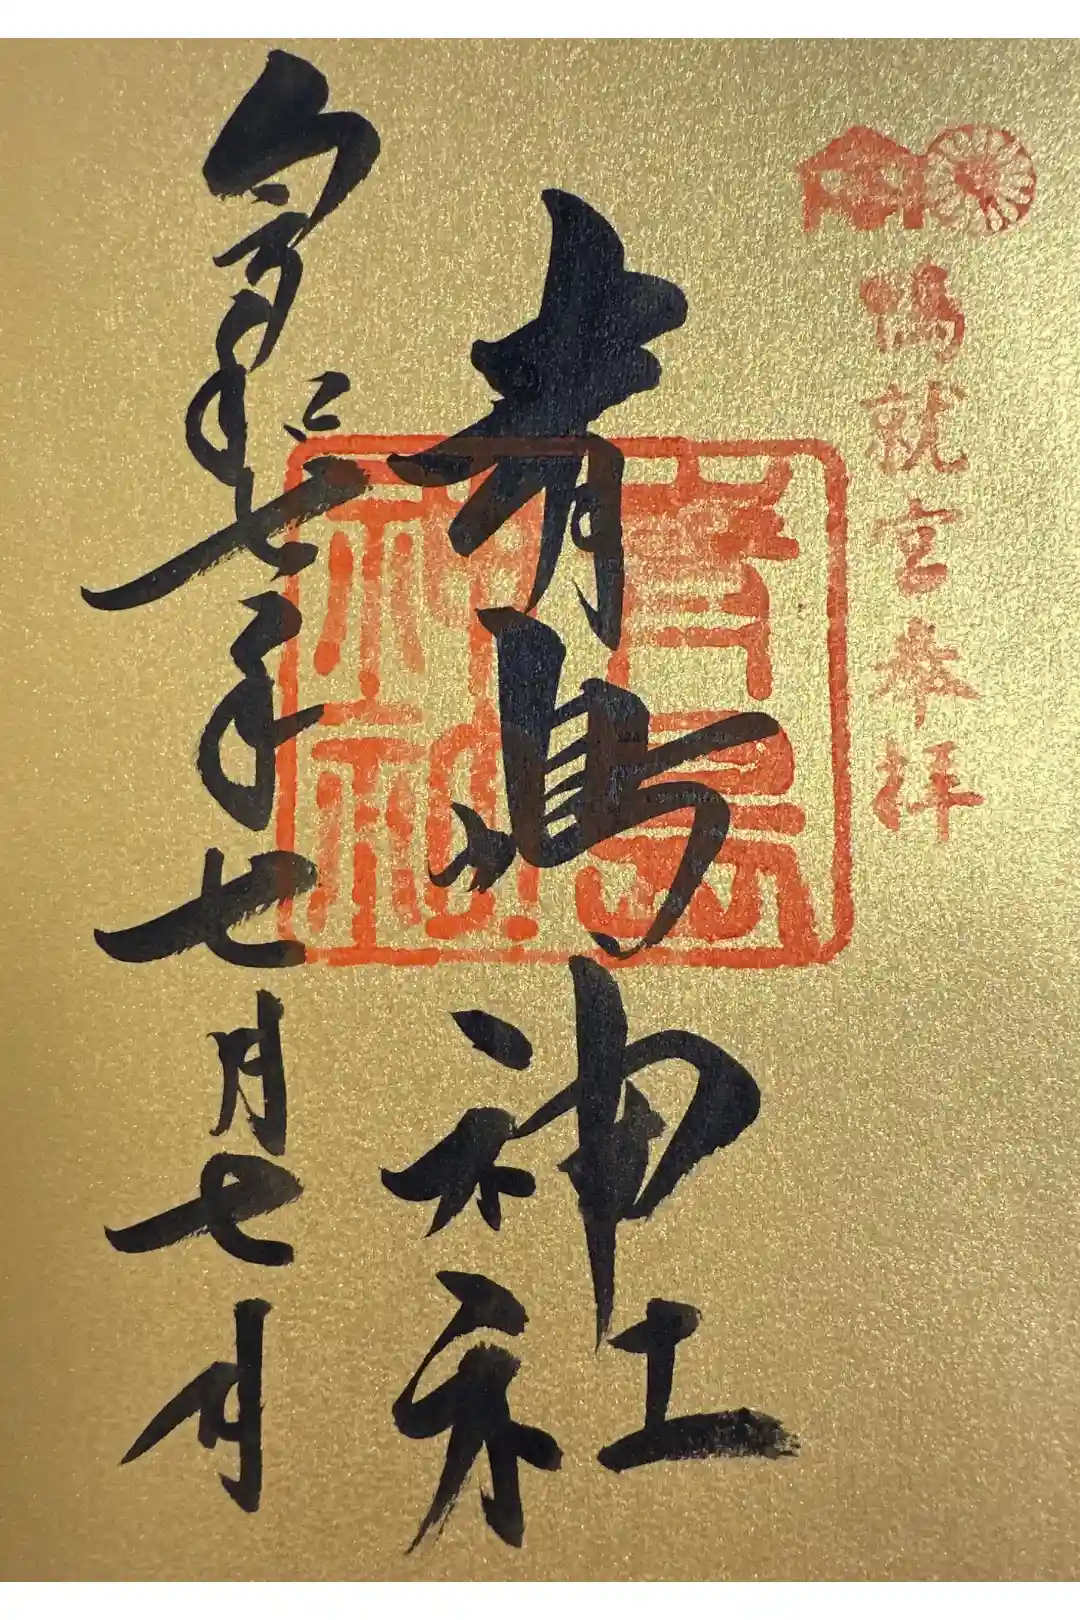 鴨就宮参拝
青島神社
青島
神社
令和七年七月七日